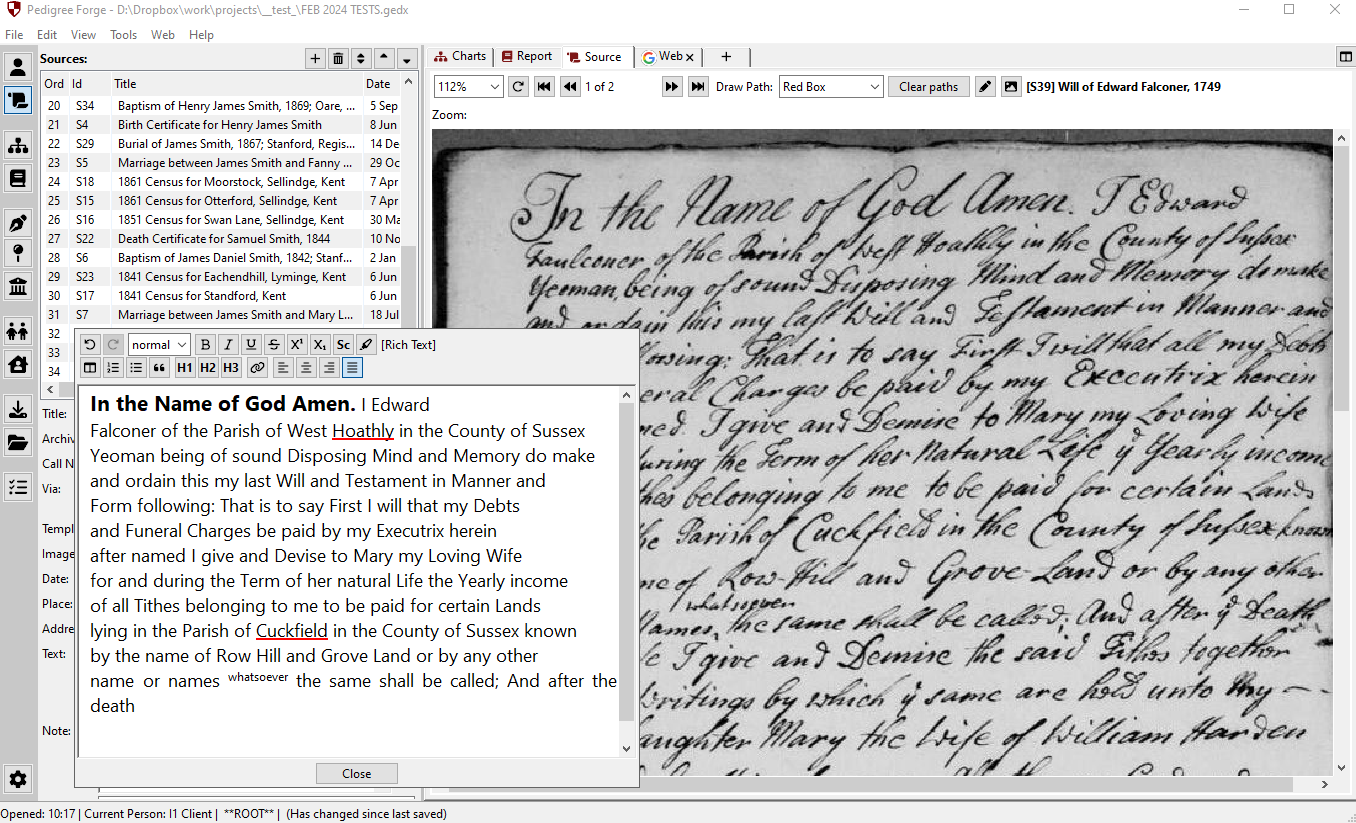 Pedigree Forge - D:\Dropbox\work\projects\__test_\FEB 2024 TESTS.gedx
File Edit View Tools Web Help
Sources:
Ord Id Title Date
20 S34 Baptism of Henry James Smith, 1869; Oare, ... 5 Sep
21 S4 Birth Certificate for Henry James Smith 8 Jun
22 S29 Burial of James Smith, 1867; Stanford, Regis... 14 De
23 S5 Marriage between James Smith and Fanny ... 29 Oc
24 S18 1861 Census for Moorstock, Sellindge, Kent 7 Apr
25 S15 1861 Census for Otterford, Sellindge, Kent 7 Apr
26 S16 1851 Census for Swan Lane, Sellindge, Kent 30 Ma
27 S22 Death Certificate for Samuel Smith, 1844 10 No
28 S6 Baptism of James Daniel Smith, 1842; Stanf... 2 Jan
29 S23 1841 Census for Eachendhill, Lyminge, Kent 6 Jun
30 S17 1841 Census for Standford, Kent 6 Jun
31 S7 Marriage between James Smith and Mary L... 18 Jul
32
33
34
Title:
Archiv
Call N
Via:
Templ
Image
Date:
Place:
Addre
Text:
Note:
normal B I U S X¹ X₁ Sc [Rich Text]
H1 H2 H3
In the Name of God Amen. I Edward
Falconer of the Parish of West Hoathly in the County of Sussex
Yeoman being of sound Disposing Mind and Memory do make
and ordain this my last Will and Testament in Manner and
Form following: That is to say First I will that my Debts
and Funeral Charges be paid by my Executrix herein
after named I give and Devise to Mary my Loving Wife
for and during the Term of her natural Life the Yearly income
of all Tithes belonging to me to be paid for certain Lands
lying in the Parish of Cuckfield in the County of Sussex known
by the name of Row Hill and Grove Land or by any other
name or names whatsoever the same shall be called; And after the
death
Close
Charts Report Source Web +
112% 1 of 2 Draw Path: Red Box Clear paths [S39] Will of Edward Falconer, 1749
Zoom:
In the Name of God Amen. I Edward
Faulconer of the Parish of West Hoathly in the County of Sussex
Yeoman, being of sound Disposing Mind and Memory do make
and ordain this my last Will and Testament in Manner and
lowing: That is to say First I will that all my Debts
eral Charges be paid by my Excecutrix herein
med. I give and Demise to Mary my Loving Wife
uring the Term of her Natural Life ye Yearly income
thes belonging to me to be paid for certain Lands
he Parish of Cuckfield in the County of Sussex known
me of Row-Hill and Grove-Land or by any other
whatsoever
Names, the same shall be called; And after ye Death
fe I give and Demise the said Tithes together
Writings by which ye same are held unto my
aughter Mary the Wife of William Harden
Opened: 10:17 | Current Person: I1 Client | **ROOT** | (Has changed since last saved)